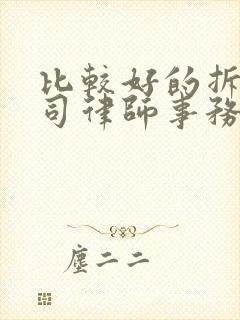 比較好的拆
司律師事務
塵二二